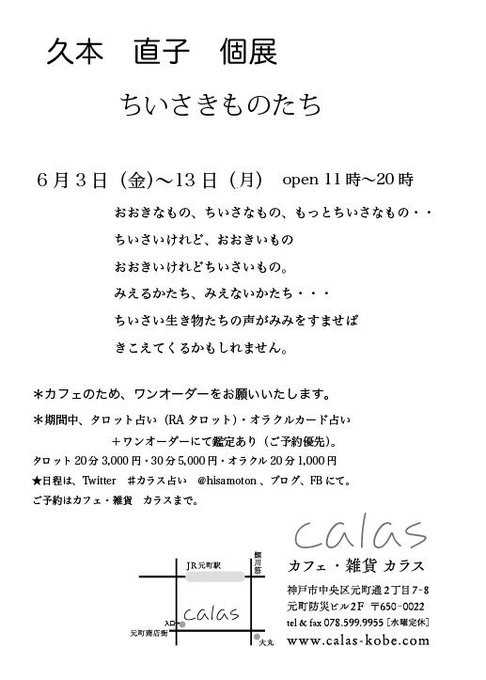 久本　直子　個展
ちいさきものたち
6月3日（金）〜13日（月）　open 11時〜20時
おおきなもの、ちいさなもの、もっとちいさなもの・・
ちいさいけれど、おおきいもの
おおきいけれどちいさいもの。
みえるかたち、みえないかたち・・・
ちいさい生き物たちの声がみみをすませば
きこえてくるかもしれません。
＊カフェのため、ワンオーダーをお願いいたします。
＊期間中、タロット占い（RAタロット）・オラクルカード占い
＋ワンオーダーにて鑑定あり（ご予約優先）。
タロット20分3,000円・30分5,000円・オラクル20分1,000円
★日程は、Twitter　＃カラス占い　@hisamoton 、ブログ、FBにて。
ご予約はカフェ・雑貨　カラスまで。
calas
カフェ・雑貨 カラス
神戸市中央区元町通2丁目7-8
元町防災ビル2F 〒650-0022
tel & fax 078.599.9955［水曜定休］
www.calas-kobe.com
JR元町駅
鯉川筋
calas
入口
元町商店街
大丸